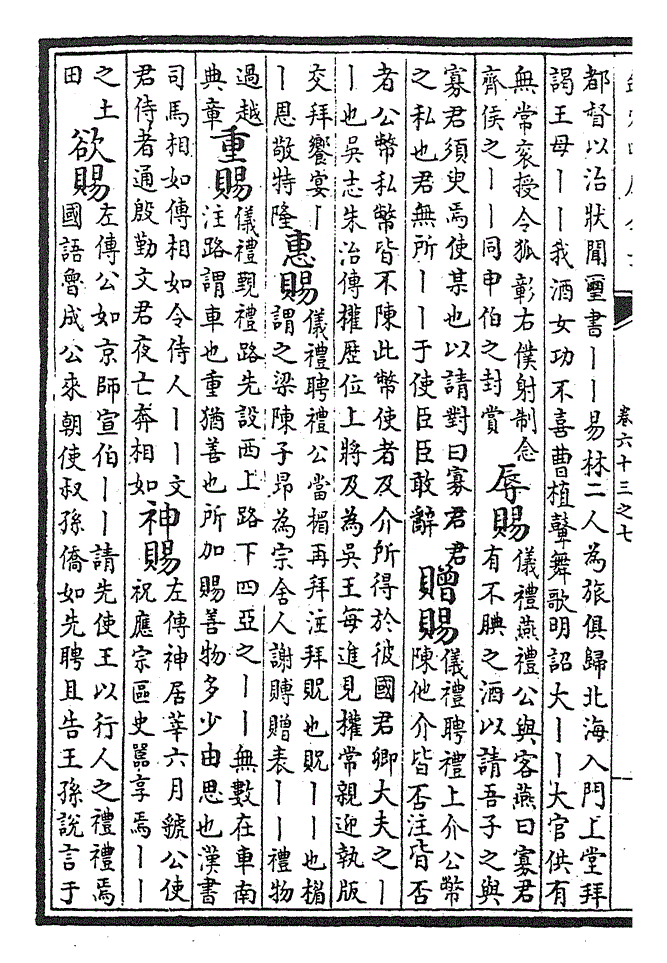 卷六十三之七
都督以治狀聞璽書丨丨易林二人為旅俱歸北海入門上堂拜
謁王母丨丨我酒女功不喜曹植鼙舞歌明詔大丨丨大官供有
無常袞授令狐彰右僕射制念
齊侯之丨丨同申伯之封賞
辱賜
儀禮燕禮公與客燕曰寡君
有不腆之酒以請吾子之與
寡君須臾焉使某也以請對曰寡君君
之私也君無所丨丨于使臣臣敢辭
贈賜
儀禮聘禮上介公幣
陳他介皆否注皆否
者公幣私幣皆不陳此幣使者及介所得於彼國君卿大夫之丨
丨也吳志朱治傳權歷位上將及為吳王每進見權常親迎執版
交拜饗宴丨
丨恩敬特隆
惠賜
儀禮聘禮公當楣再拜注拜貺也貺丨丨也楣
謂之梁陳子昂為宗舍人謝賻贈表丨丨禮物
過越
典章
重賜
儀禮覲禮路先設西上路下四亞之丨丨無數在車南
注路謂車也重猶善也所加賜善物多少由思也漢書
司馬相如傳相如令侍人丨丨文
君侍者通殷勤文君夜亡奔相如
神賜
左傳神居莘六月虢公使
祝應宗區史嚚享焉丨丨
之土
田
欲賜
左傳公如京師宣伯丨丨請先使王以行人之禮禮焉
國語魯成公來朝使叔孫僑如先聘且告王孫說言于